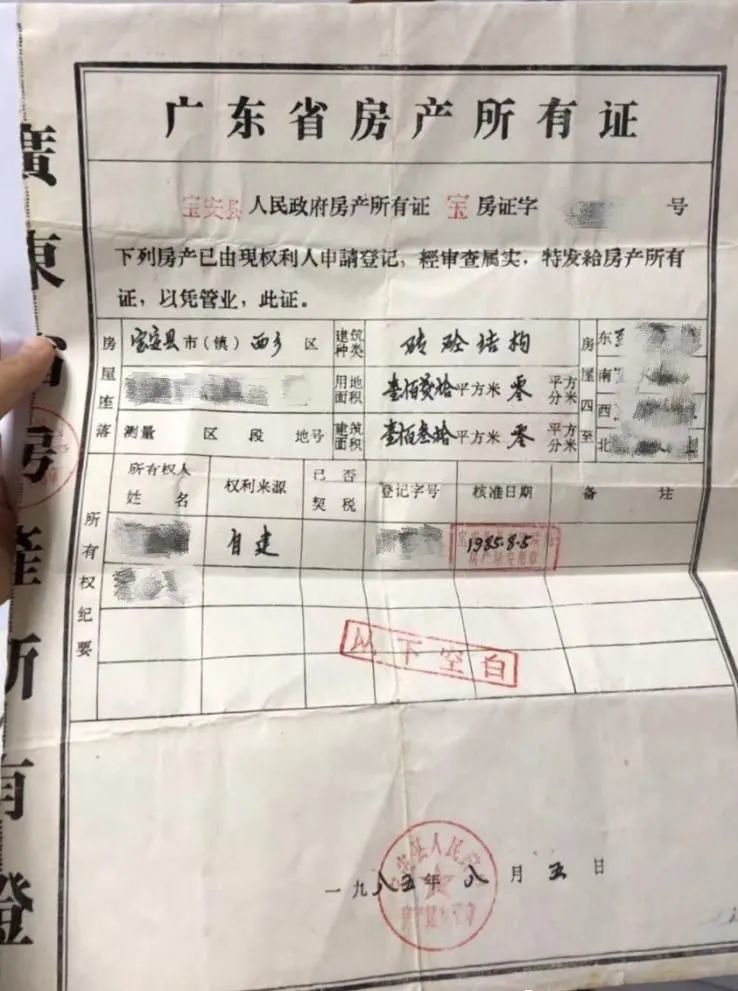 广东省房产所有证
宝安县人民政府房产所有证 宝 房证字 号
下列房产已由现权利人申請登记，經审查属实，特发給房产所有
证，以凭管业，此证。
房屋座落
宝安县市（镇）西乡区
测量 区 段 地号
建筑种类
砖砼结构
用地面积
壹佰贰拾平方米零平方分米
建筑面积
壹佰叁拾平方米零平方分米
房屋四至
东
南
西
北
所有权纪要
所有权人姓名
权利来源
已否契税
登记字号
核准日期
备注
自建
1985.8.5
以下空白
一九八五年八月五日
廣東省房產所有證